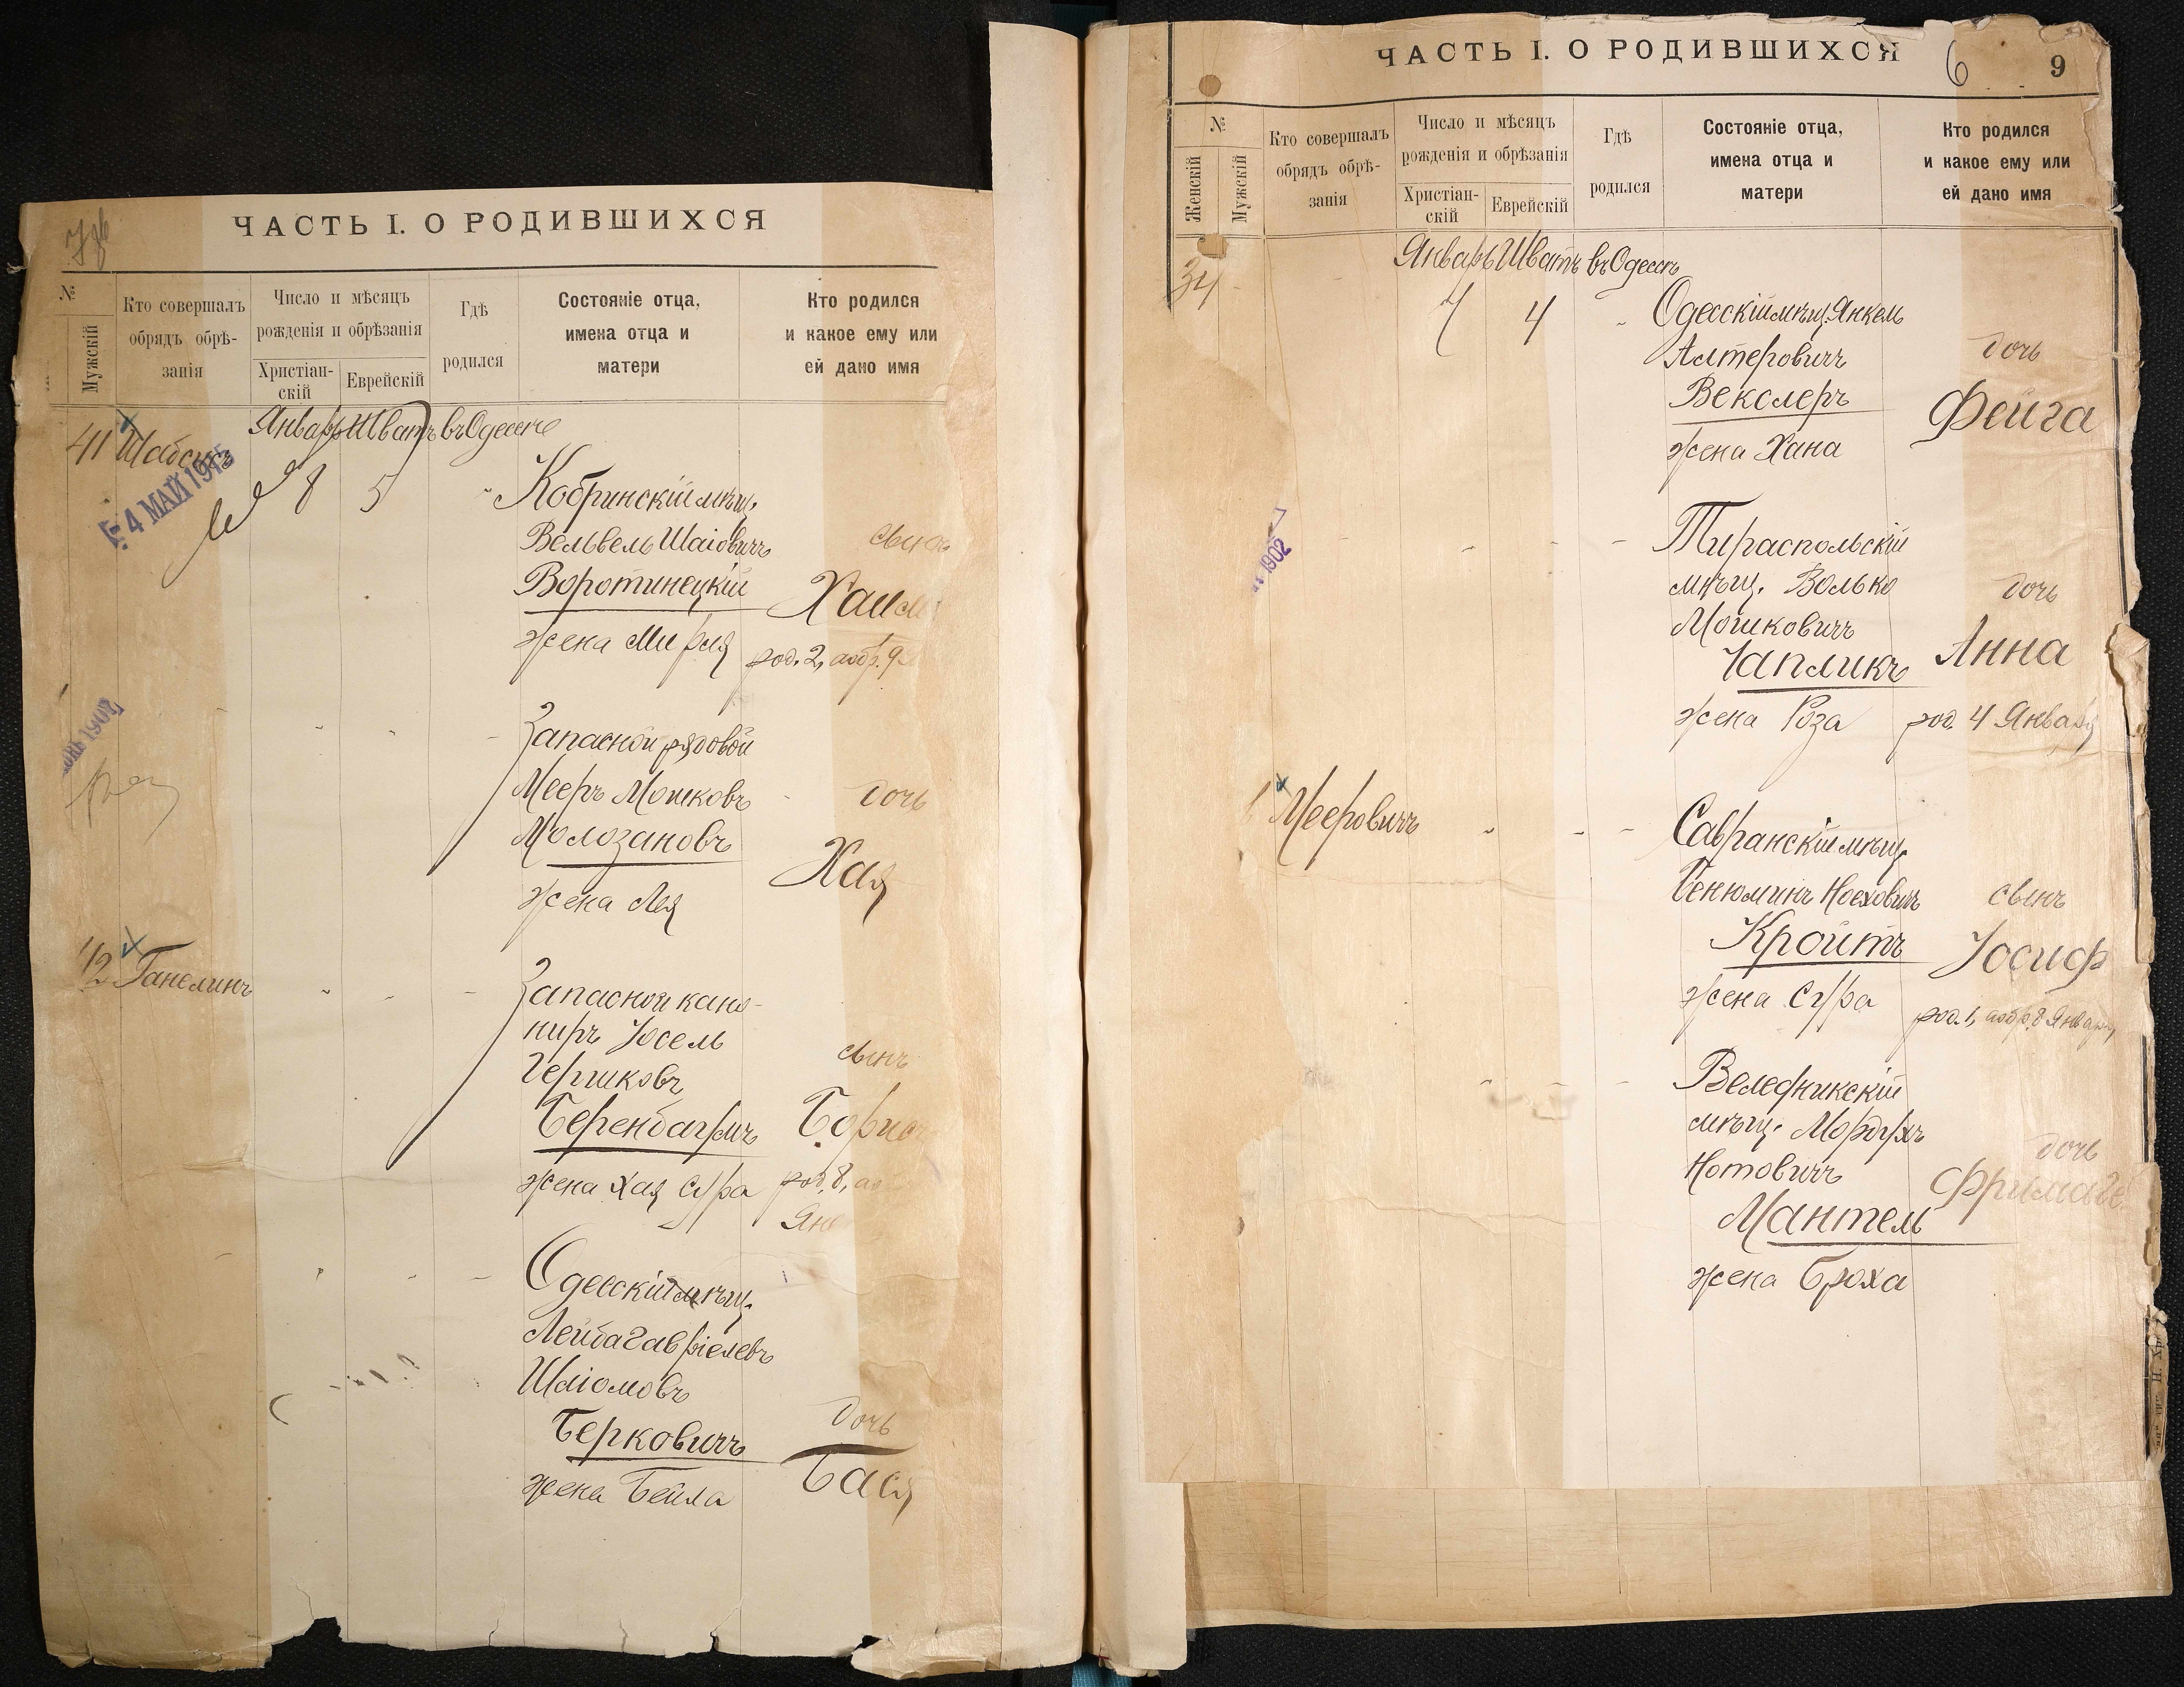 ЧАСТЬ I. О РОДИВШИХСЯ
№
Мужскій
Кто совершалъ
обрядъ обрѣ-
занія
Число и мѣсяцъ
рожденія и обрѣзанія
Христіан-
скій
Еврейскій
Гдѣ
родился
Состояніе отца,
имена отца и
матери
Кто родился
и какое ему или
ей дано имя
Январь Шватъ въ Одессѣ
41 Шабсисъ
4 МАЙ 1915
8 5
Кобринскій мѣщ.
Вельвель Шаіовичъ
Воротинецкій
жена Мирля
сынъ
Хаимъ
род. 2, а обр. 9
1902
Запасной рядовой
Мееръ Мошковъ
Молозановъ
жена Лея
дочь
Хая
42 Ганелинъ
Запасной кано-
ниръ Іосель
Гершковъ
Беренбаумъ
жена Хая Сура
сынъ
Борисъ
род. 8, а
Янв
Одесскій мѣщ.
Лейба Гавріелевъ
Шліомовъ
Берковичъ
жена Бейла
дочь
Бася
ЧАСТЬ I. О РОДИВШИХСЯ
6
9
№
Женскій
Мужскій
Кто совершалъ
обрядъ обрѣ-
занія
Число и мѣсяцъ
рожденія и обрѣзанія
Христіан-
скій
Еврейскій
Гдѣ
родился
Состояніе отца,
имена отца и
матери
Кто родился
и какое ему или
ей дано имя
Январь Шватъ въ Одессѣ
34
7 4
Одесскій мѣщ. Янкель
Алтеровичъ
Векслеръ
жена Хана
дочь
Фейга
1902
Тираспольскій
мѣщ. Волько
Мошковичъ
Чапликъ
жена Роза
дочь
Анна
род. 4 Января
Мееровичъ
Савранскій мѣщ.
Бенюминъ Ноеховичъ
Кройтъ
жена Сура
сынъ
Іосиф
род. 1, а обр. 8 Января
Веледникскій
мѣщ. Мордухъ
Нотовичъ
Мантель
жена Броха
дочь